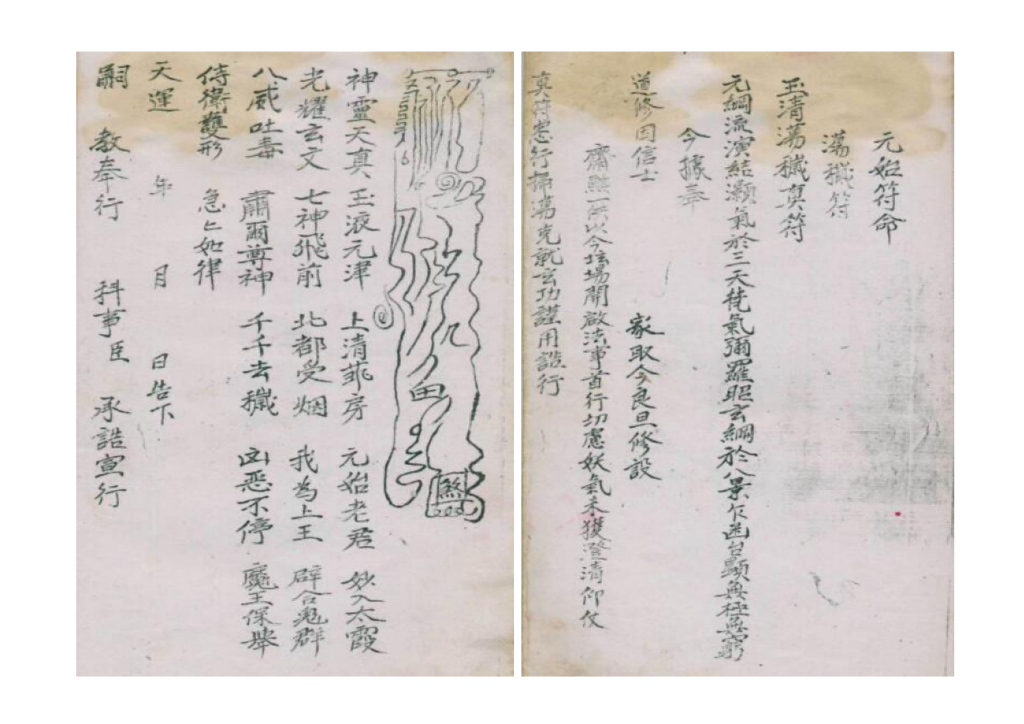 元始符命
蕩穢符
玉清蕩穢真符
元綱流演結灝氣於三天梵氣彌羅昭玄綱於八景乍函台顯無極無窮
今據奉
道修因信士 家取今良旦修設
齋醮一所以今壇場開啟法事首行切慮妖氣未獲澄清仰仗
真符悉行掃蕩克就玄功謹用誥行
煞
神靈天真 玉液元津 上清菲房 元始老君 妙入太霞
光耀玄文 七神飛前 北都受烟 我為上王 辟合鬼群
八威吐毒 肅爾尊神 千千去穢 凶惡不停 魔王保舉
侍衛雙形 急〻如律
天運 年 月 日告下
嗣 教奉行 科事臣 承誥宣行